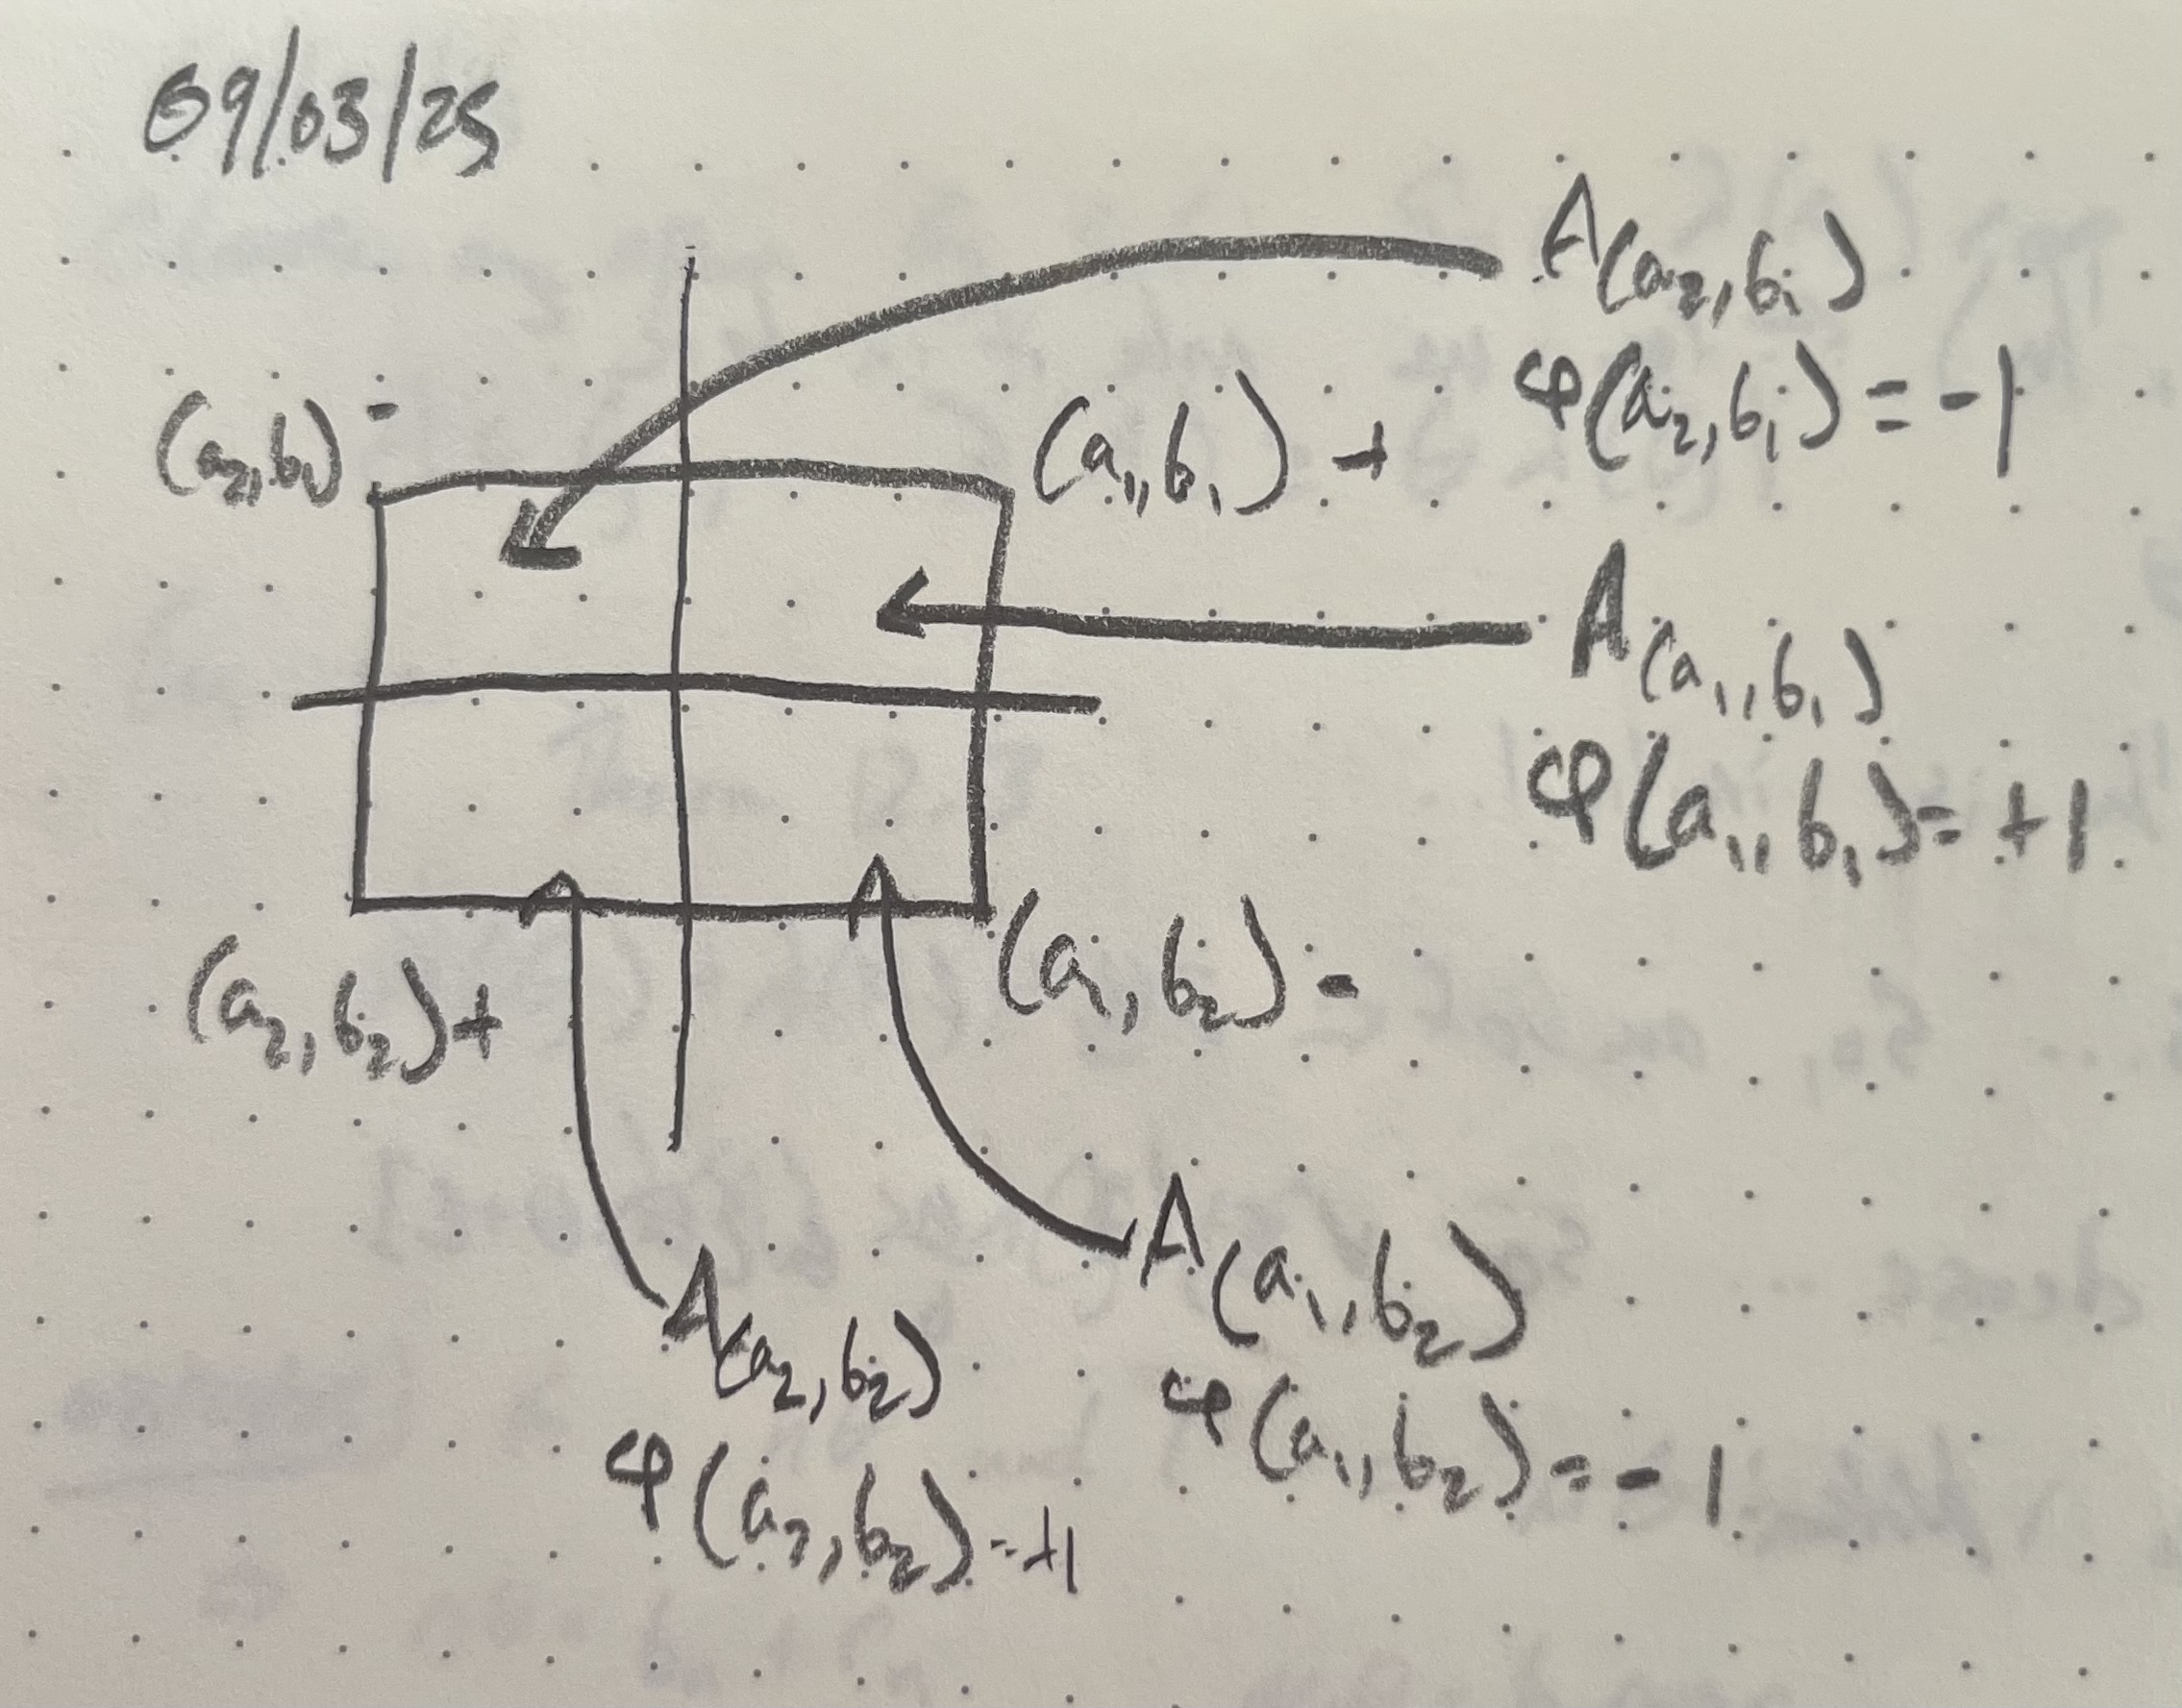 09/03/25
A(a₂,b₁)
φ(a₂,b₁) = -1
(a₂,b₁) -
(a₁,b₁) +
A(a₁,b₁)
φ(a₁,b₁) = +1
(a₂,b₂) +
(a₁,b₂) -
A(a₂,b₂)
φ(a₂,b₂) = +1
A(a₁,b₂)
φ(a₁,b₂) = -1